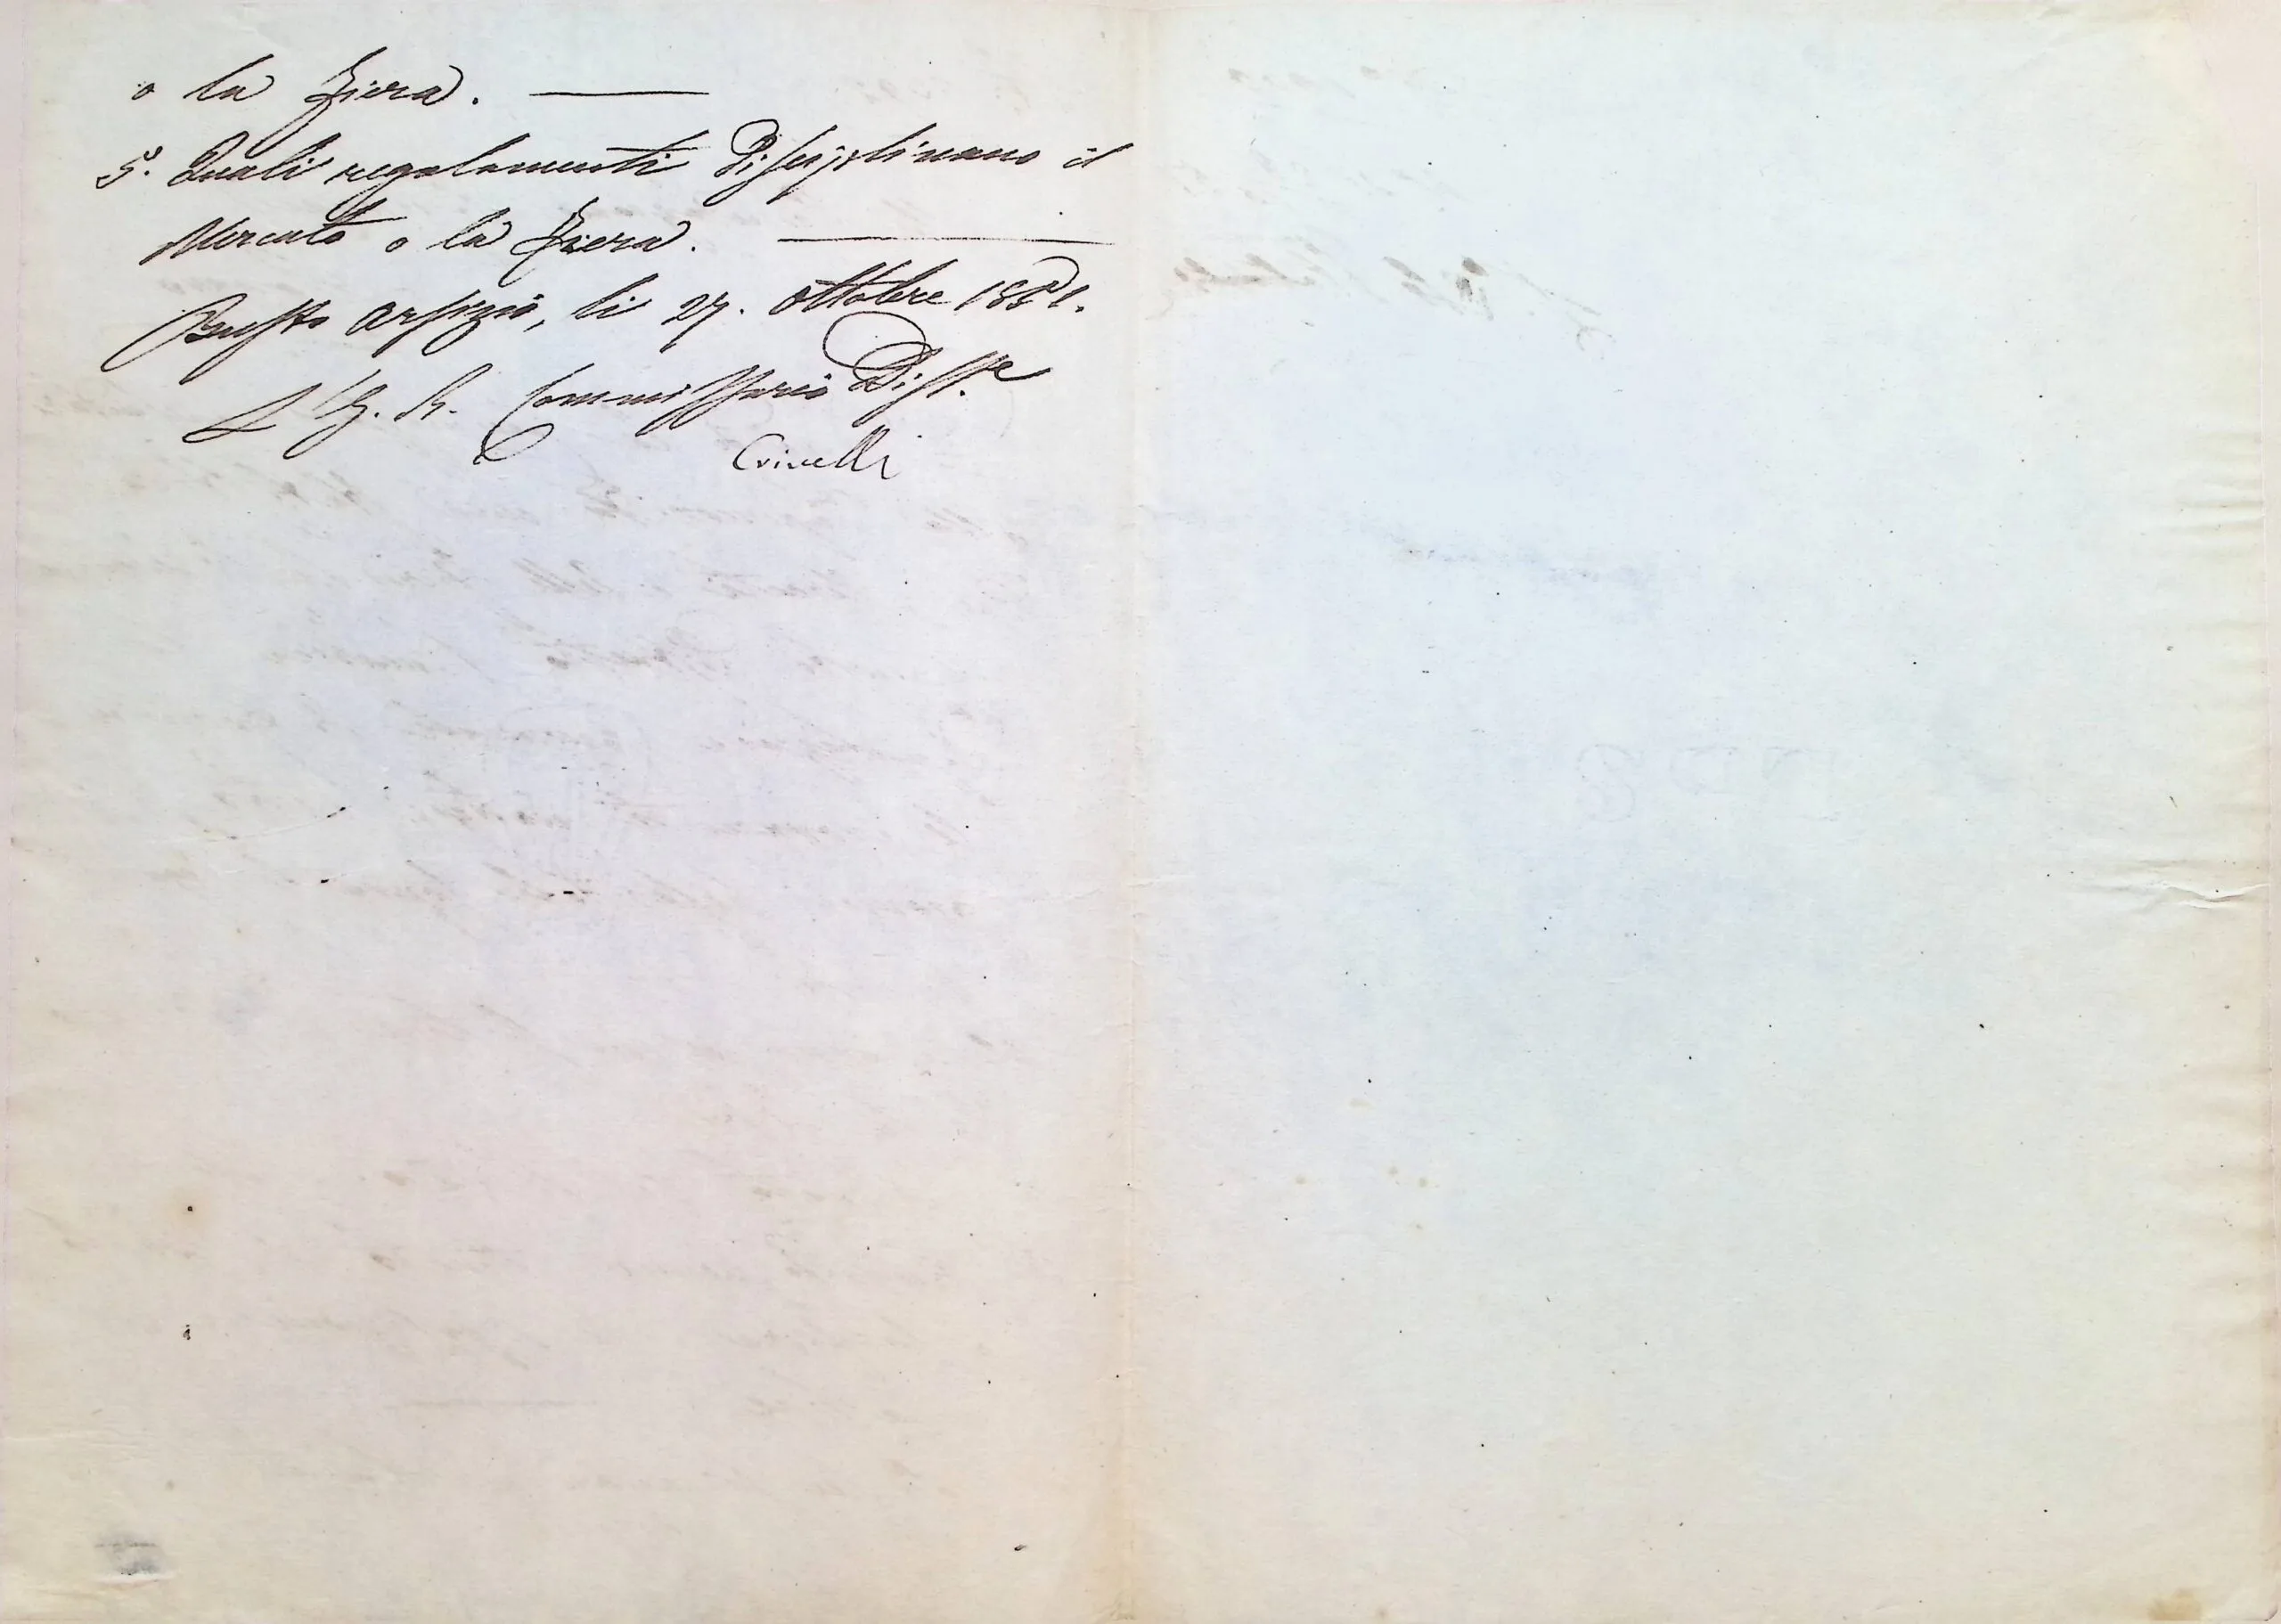 o la Fiera.
5. Quali regolamenti disciplinano il
Mercato o la Fiera.
Busto Arsizio, li 27. Ottobre 1851.
L'I. R. Commissario Distle
Crivelli